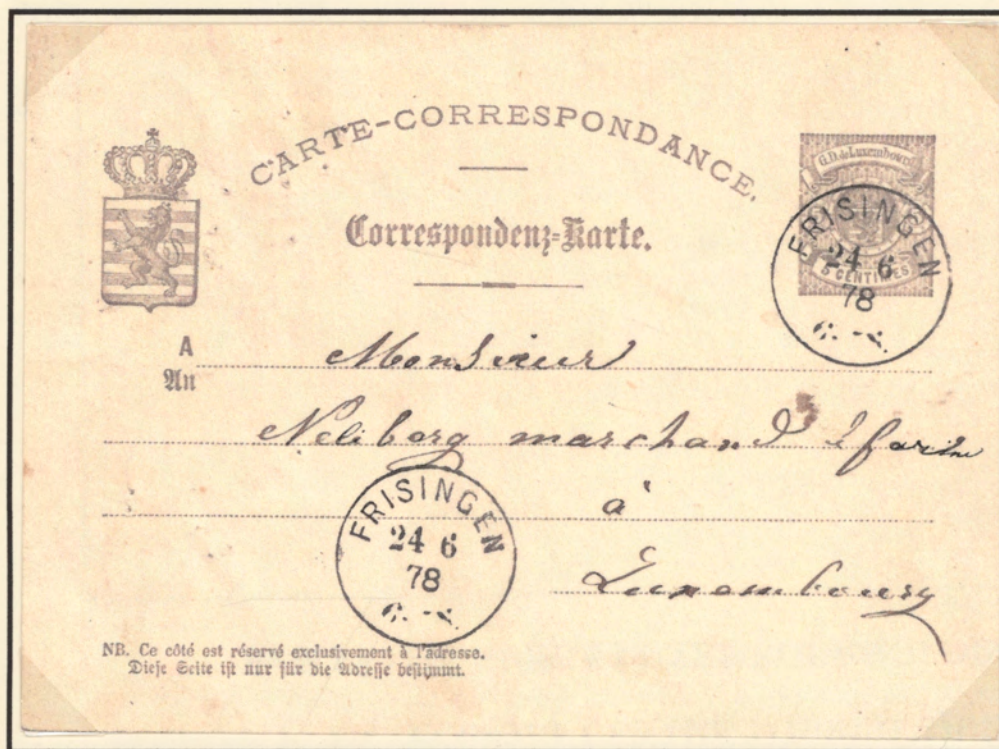 CARTE-CORRESPONDANCE.
G.D. de Luxembourg
Correspondenz-Karte.
5 CENTIMES
FRISINGEN
24 6
78
A
An
Monsieur
Neliberg marchand d farine
à
Luxembourg
FRISINGEN
24 6
78
NB. Ce côté est réservé exclusivement à l'adresse.
Diese Seite ist nur für die Adresse bestimmt.